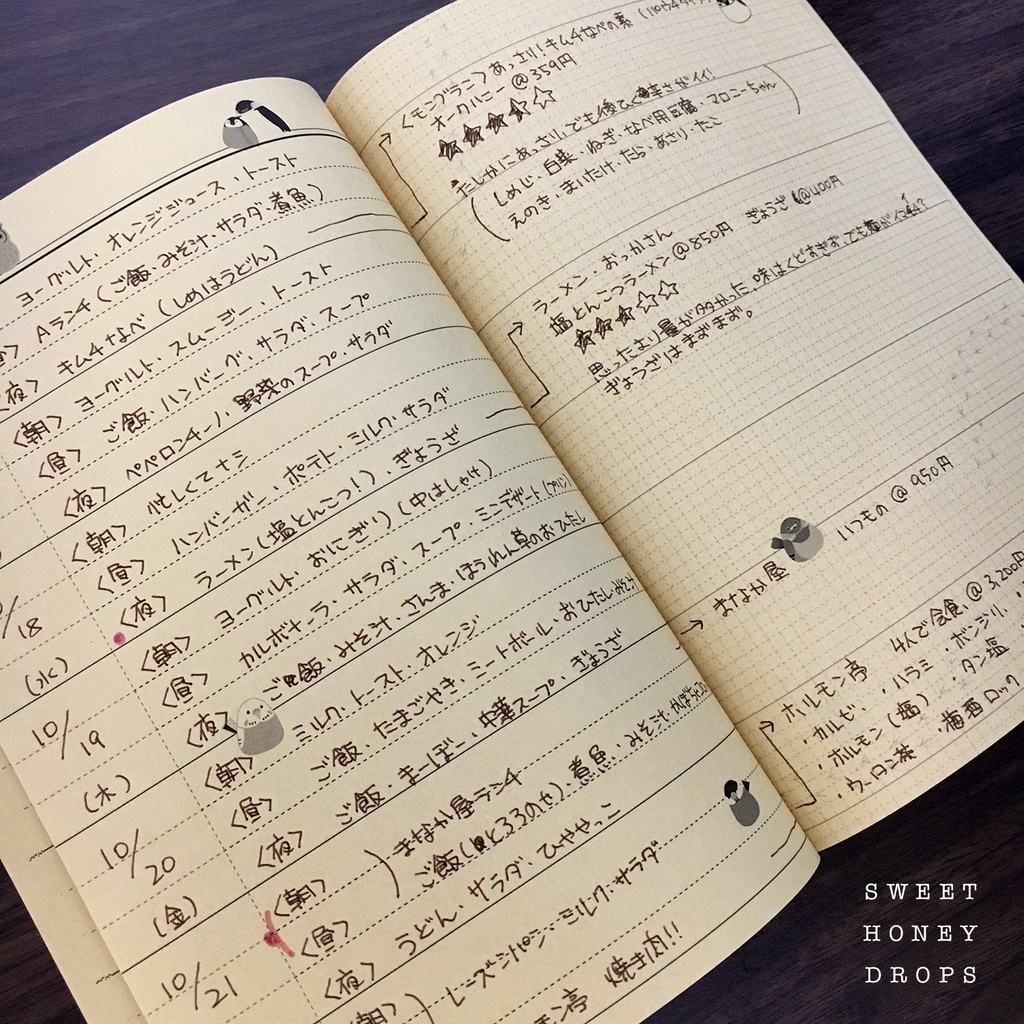 ヨーグルト・オレンジジュース・トースト
Aランチ(ご飯・みそ汁・サラダ・煮魚)
〈夜〉 キムチなべ (しめはうどん)
〈朝〉 ヨーグルト・スムージー・トースト
〈昼〉 ご飯・ハンバーグ・サラダ・スープ
〈夜〉 ペペロンチーノ・野菜のスープ・サラダ
〈朝〉 忙しくてナシ
〈昼〉 ハンバーガー・ポテト・ミルク・サラダ
/18 〈夜〉 ラーメン(塩とんこつ!)・ぎょうざ
(水) 〈朝〉 ヨーグルト・おにぎり(中はしゃけ)
〈昼〉 カルボナーラ・サラダ・スープ・ミニデザート(プリン)
10/19 〈夜〉 ご飯・みそ汁・さんま・ほうれん草のおひたし
(木) 〈朝〉 ミルク・トースト・オレンジ
〈昼〉 ご飯・たまごやき・ミートボール・おひたし
10/20 〈夜〉 ご飯・まーぼー・中華スープ・ぎょうざ
(金) 〈朝〉 まなか屋ランチ
〈昼〉 ご飯(とろろのせ)・煮魚・みそ汁・
10/21 〈夜〉 うどん・サラダ・ひややっこ
〈朝〉 レーズンパン・ミルク・サラダ
モン亭 焼き肉!!
〈モンブラン〉あっさり!キムチなべの素
オークハニー @359円
★★★☆☆
たしかにあっさり。でも後ひく辛さがイイ!
(しめじ・白菜・ねぎ・なべ用豆腐・マロニーちゃん
えのき・まいたけ・たら・あさり・たこ)
ラーメン・おっかさん
塩とんこつラーメン@850円 ぎょうざ @400円
★★★☆☆
思ったより量が多かった。味はくどすぎず。でも麺が
ぎょうざはまずまず。
まなか屋 いつもの @950円
ホルモン亭 4人で会食 @3,200円
・カルビ ・ハラミ ・ボンジリ
・ホルモン(塩) ・タン塩
・ウーロン茶 ・梅酒ロック
SWEET
HONEY
DROPS